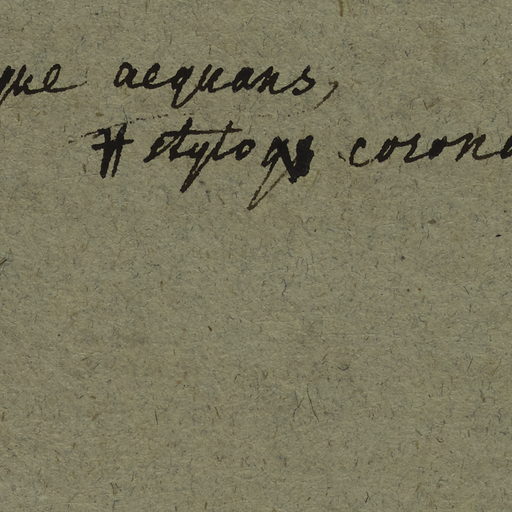 que aequans,
# stylo coron